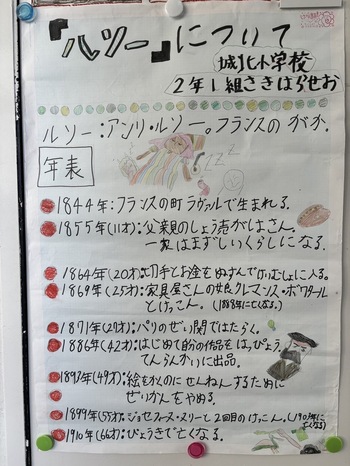 「ルソー」について
城北小学校
2年1組さきはらせお
ルソー：アンリ・ルソー。フランスの がか.
年表
1844年：フランスの町 ラヴァルで生まれる.
1855年（11才）：父親のしょう売がはさん。
一家はまずしいくらしになる.
1864年（20才）：切手とお金をぬすんでけいむしょに入る.
1869年（25才）：家具屋さんの娘クレマンス・ボワタール
とけっこん. （1888年に亡くなる.）
1871年（27才）：パリのぜい関ではたらく.
1886年（42才）：はじめて自分の作品をはっぴょう.
てんらんかいに出品.
1893年（49才）：絵をかくのに せんねんするために
ぜいかんをやめる.
1899年（55才）：ジョセフィーヌ・ヌリーと 2回目のけっこん.（1903年に亡くなる）
1910年（66才）：びょうきで亡くなる.